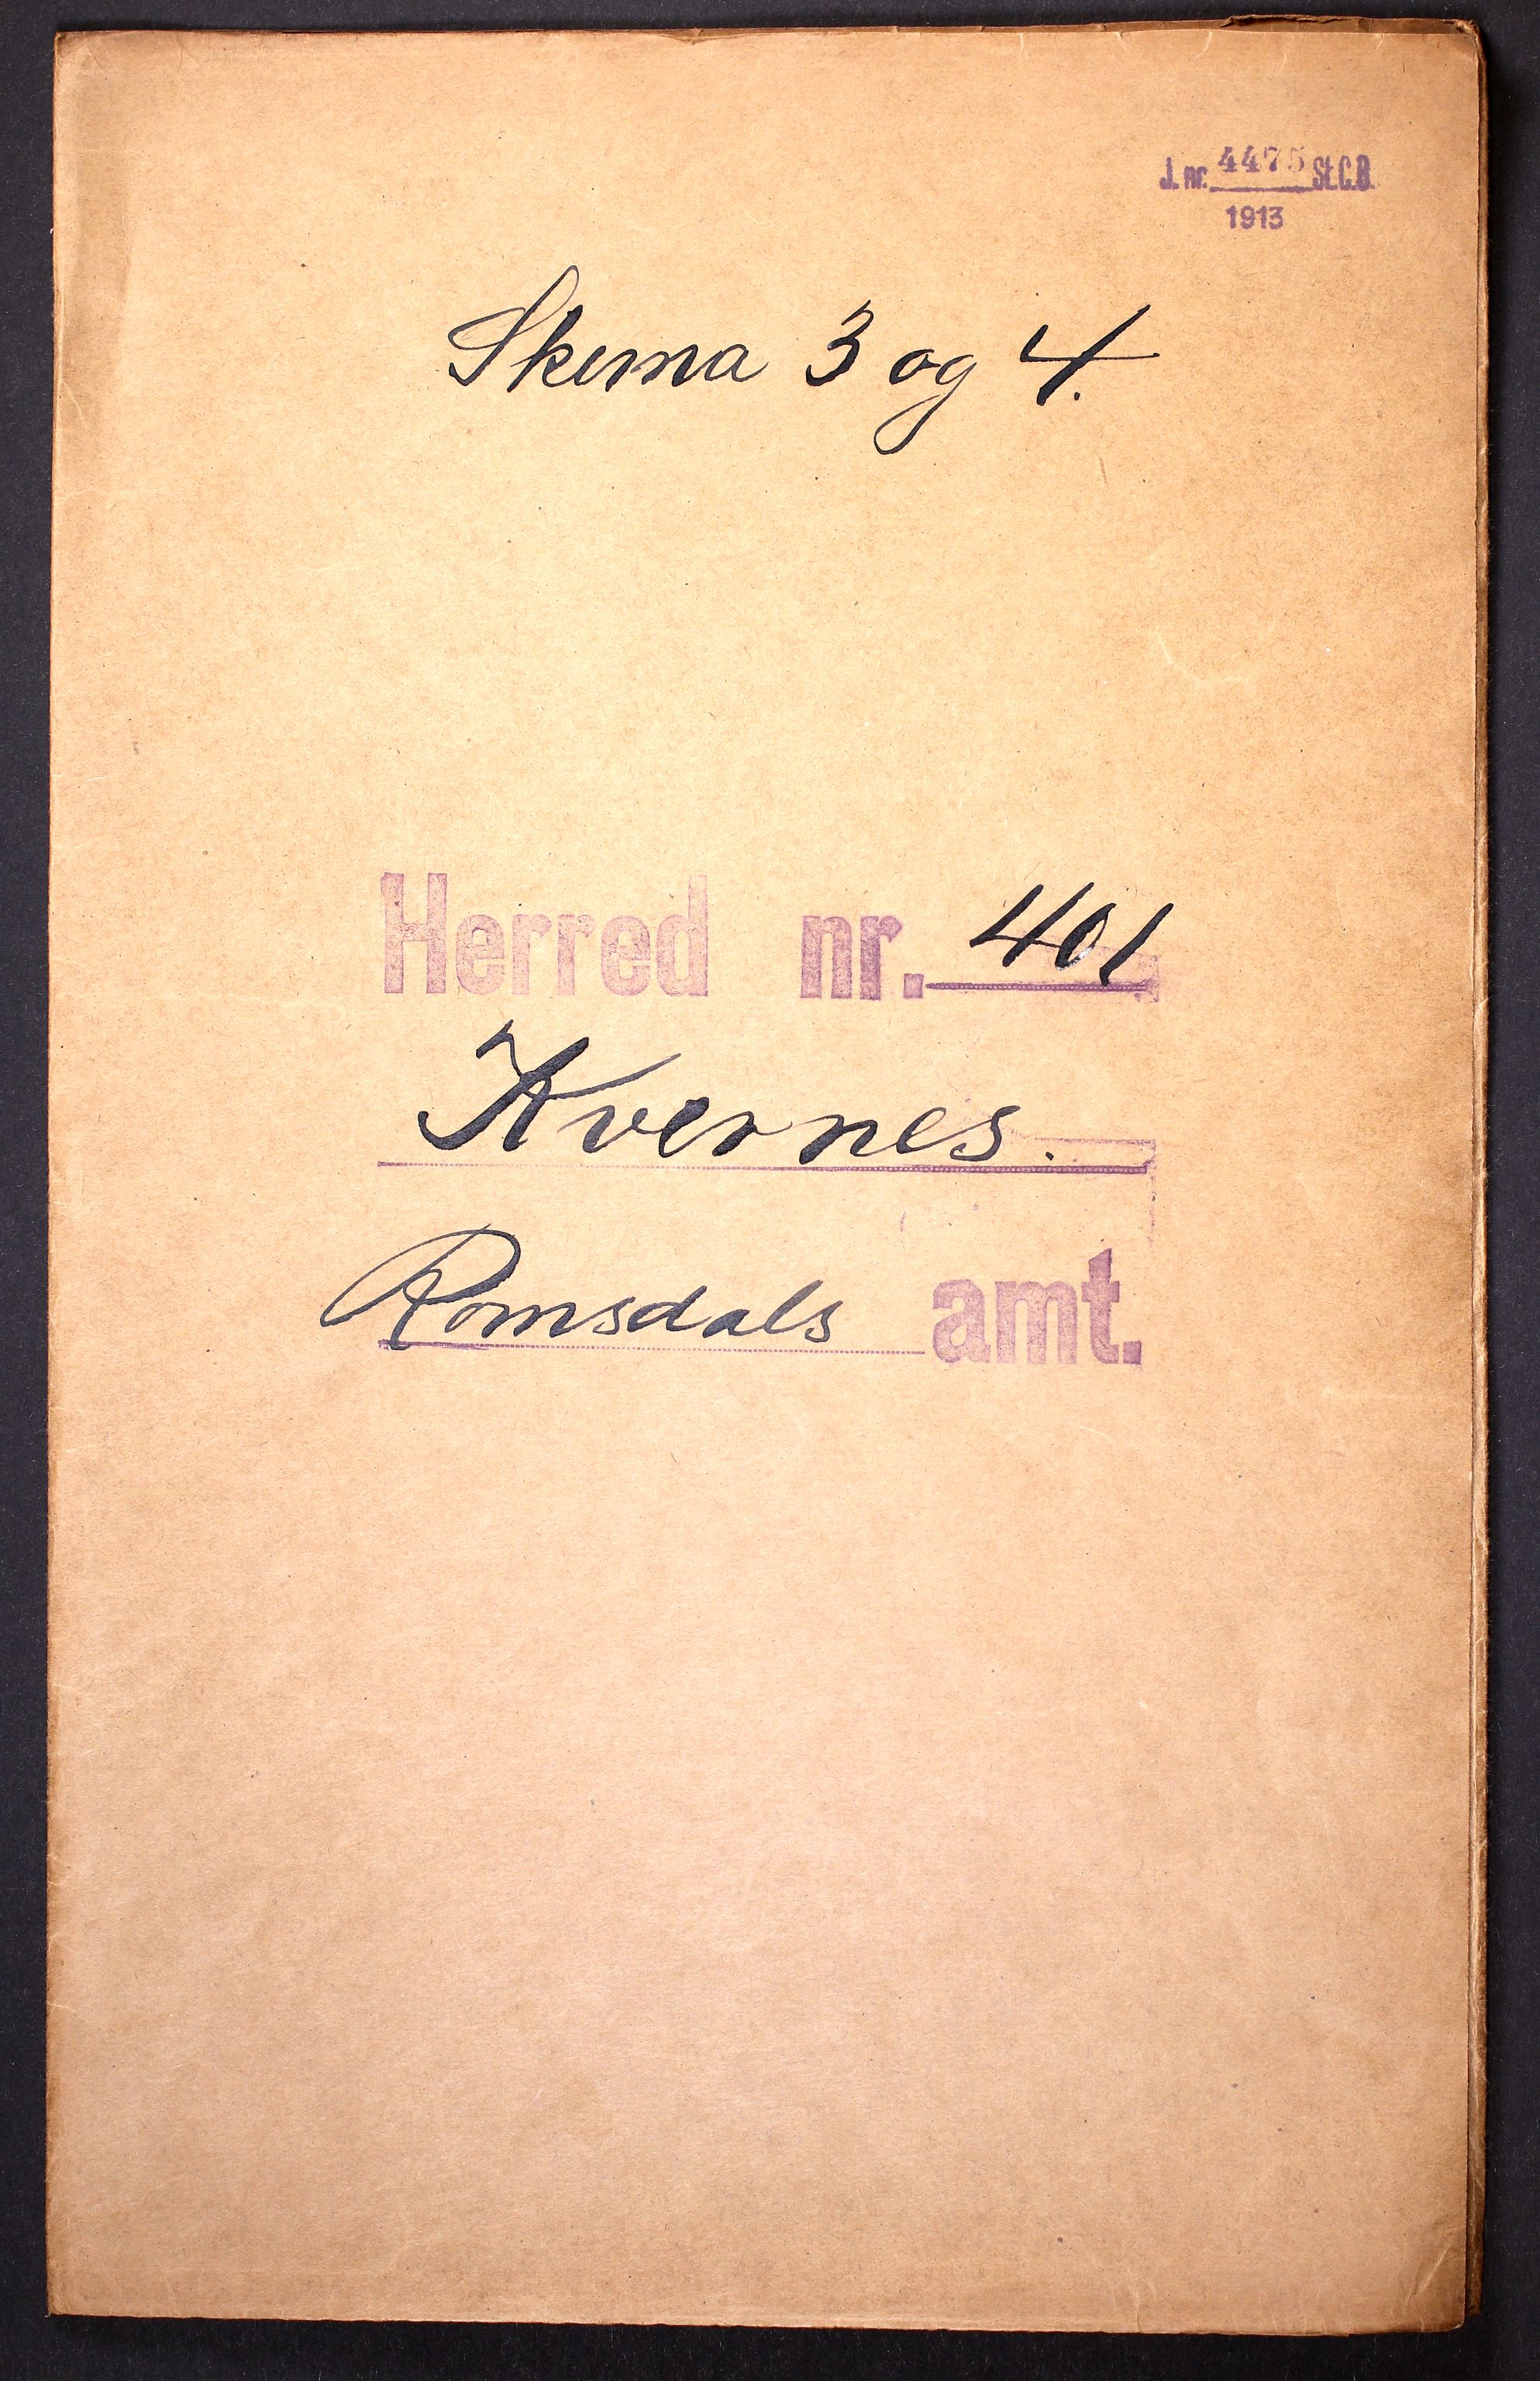 J. nr. 4475 St.C.B.
1913
Skema 3 og 4.
Herred nr. 401
Kvernes.
Romsdals amt.